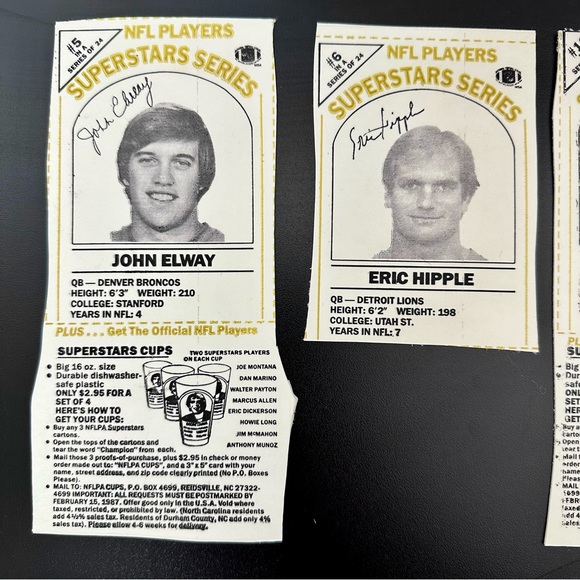 #5
IN A
SERIES OF 24
NFL PLAYERS
SUPERSTARS SERIES
John Elway
JOHN ELWAY
QB — DENVER BRONCOS
HEIGHT: 6'3" WEIGHT: 210
COLLEGE: STANFORD
YEARS IN NFL: 4
PLUS . . . Get The Official NFL Players
SUPERSTARS CUPS
• Big 16 oz. size
• Durable dishwasher-
safe plastic
ONLY $2.95 FOR A
SET OF 4
HERE'S HOW TO
GET YOUR CUPS:
• Buy any 3 NFLPA Superstars
cartons.
• Open the tops of the cartons and
tear the word "Champion" from each.
• Mail those 3 proofs-of-purchase, plus $2.95 in check or money
order made out to: "NFLPA CUPS", and a 3" x 5" card with your
name, street address, and zip code clearly printed (No P.O. Boxes
Please).
• MAIL TO: NFLPA CUPS, P.O. BOX 4699, REIDSVILLE, NC 27322-
4699 IMPORTANT: ALL REQUESTS MUST BE POSTMARKED BY
FEBRUARY 15, 1987. Offer good only in the U.S.A. Void where
taxed, restricted, or prohibited by law. (North Carolina residents
add 4½% sales tax. Residents of Durham County, NC add only 4%
sales tax). Please allow 4-6 weeks for delivery.
TWO SUPERSTARS PLAYERS
ON EACH CUP
JOE MONTANA
DAN MARINO
WALTER PAYTON
MARCUS ALLEN
ERIC DICKERSON
HOWIE LONG
JIM McMAHON
ANTHONY MUNOZ
#6
IN A
SERIES OF 24
NFL PLAYERS
SUPERSTARS SERIES
Eric Hipple
ERIC HIPPLE
QB — DETROIT LIONS
HEIGHT: 6'2" WEIGHT: 198
COLLEGE: UTAH ST.
YEARS IN NFL: 7